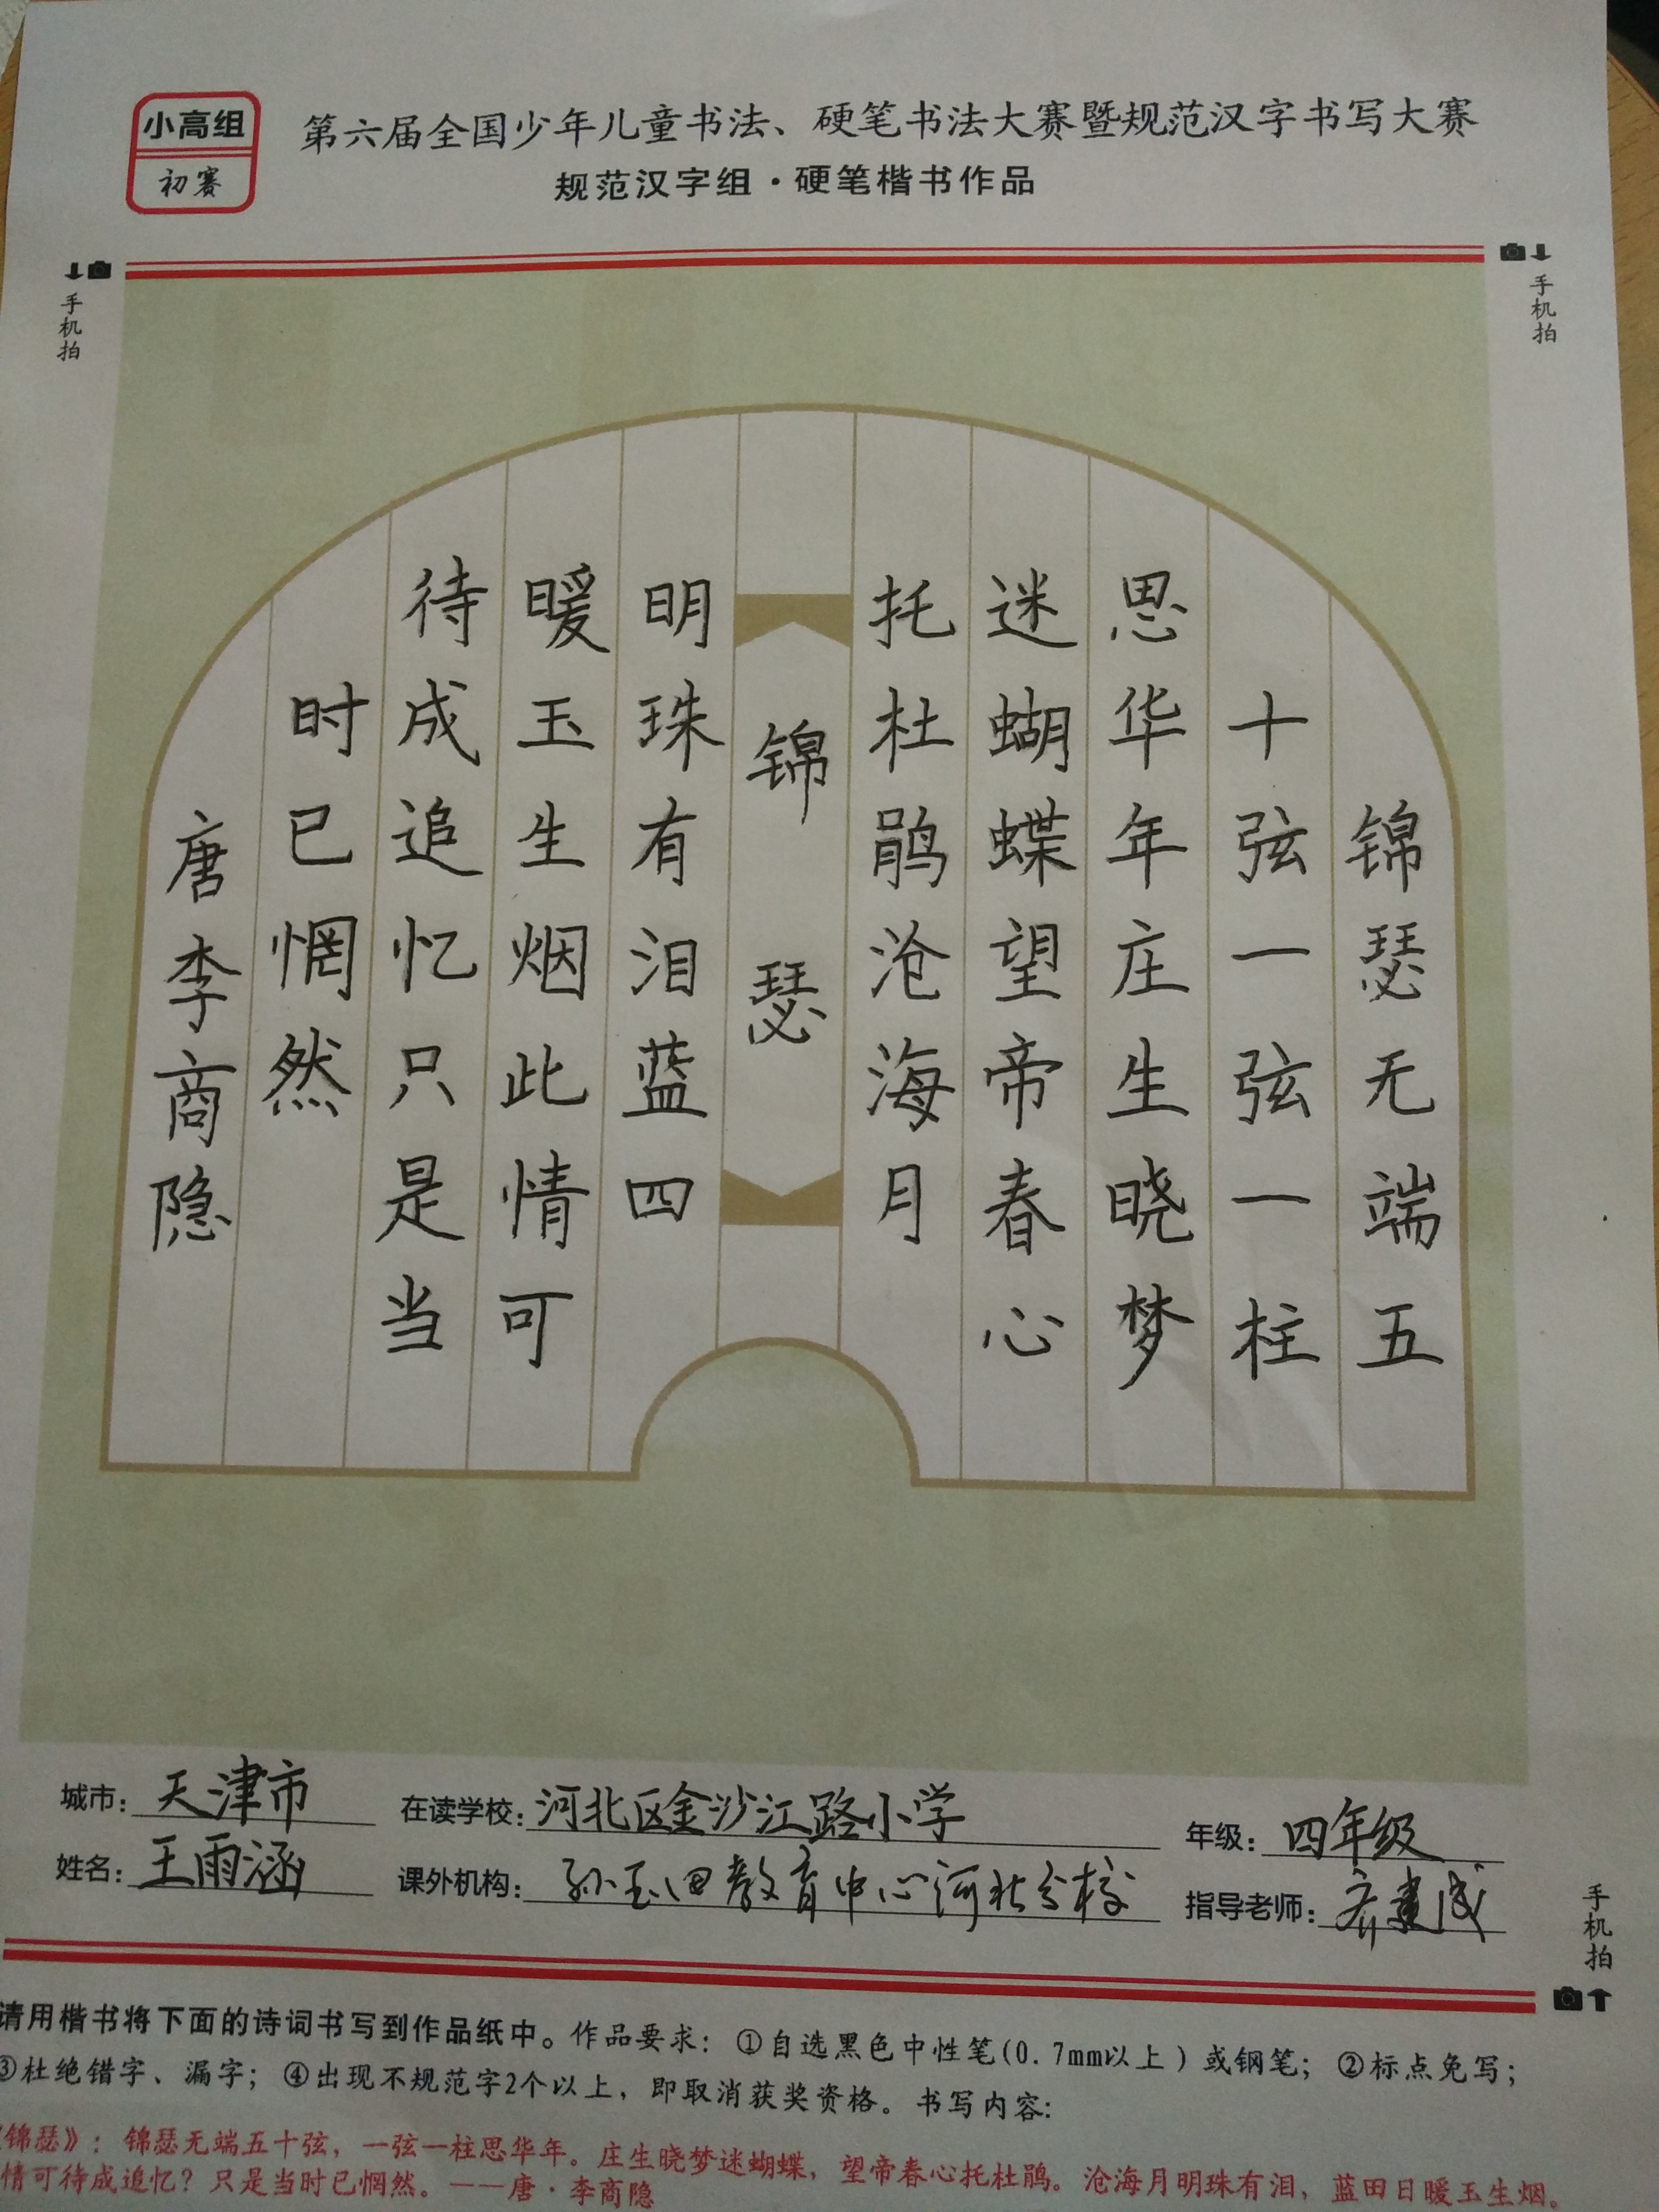 小高组
初赛
第六届全国少年儿童书法、硬笔书法大赛暨规范汉字书写大赛
规范汉字组·硬笔楷书作品
手机拍
手机拍
锦瑟无端五
十弦一弦一柱
思华年庄生晓梦
迷蝴蝶望帝春心
托杜鹃沧海月
锦瑟
明珠有泪蓝四
暖玉生烟此情可
待成追忆只是当
时已惘然
唐李商隐
城市：天津市 在读学校：河北区金沙江路小学 年级：四年级
姓名：王雨涵 课外机构：孙玉田教育中心河北分校 指导老师：齐建成
手机拍
请用楷书将下面的诗词书写到作品纸中。作品要求：①自选黑色中性笔(0.7mm以上)或钢笔；②标点免写；
③杜绝错字、漏字；④出现不规范字2个以上，即取消获奖资格。书写内容：
《锦瑟》：锦瑟无端五十弦，一弦一柱思华年。庄生晓梦迷蝴蝶，望帝春心托杜鹃。沧海月明珠有泪，蓝田日暖玉生烟。
情可待成追忆？只是当时已惘然。——唐·李商隐